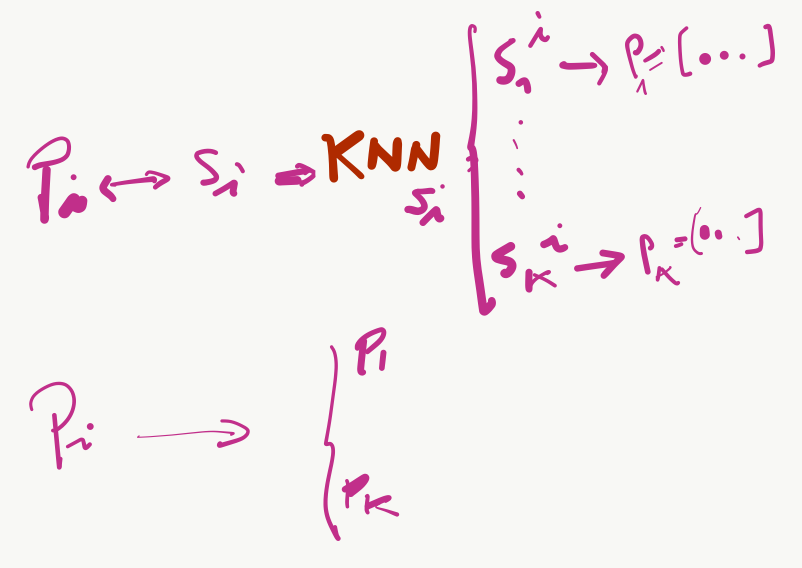 P_i ↔ S_i → KNN S_i { S_1^i → P_1 = [...]
⋮
S_K^i → P_K = [...]
P_i → { P_1
P_K